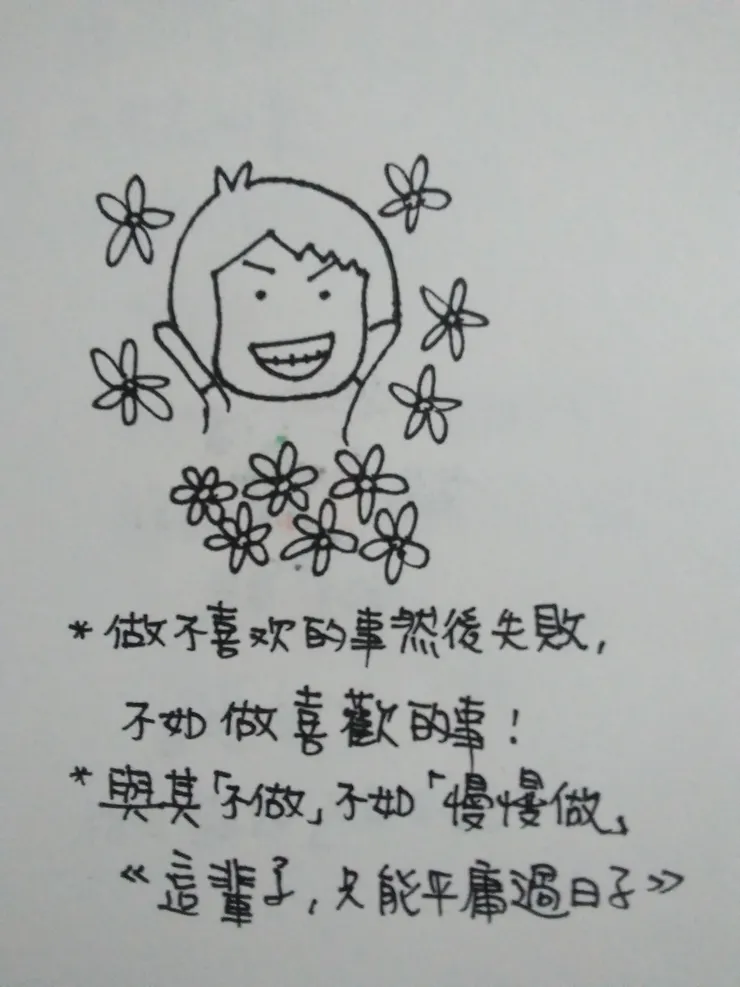 *做不喜欢的事然後失敗,
不如做喜歡的事!
*與其「不做」不如「慢慢做」
《這輩子,只能平庸過日子》